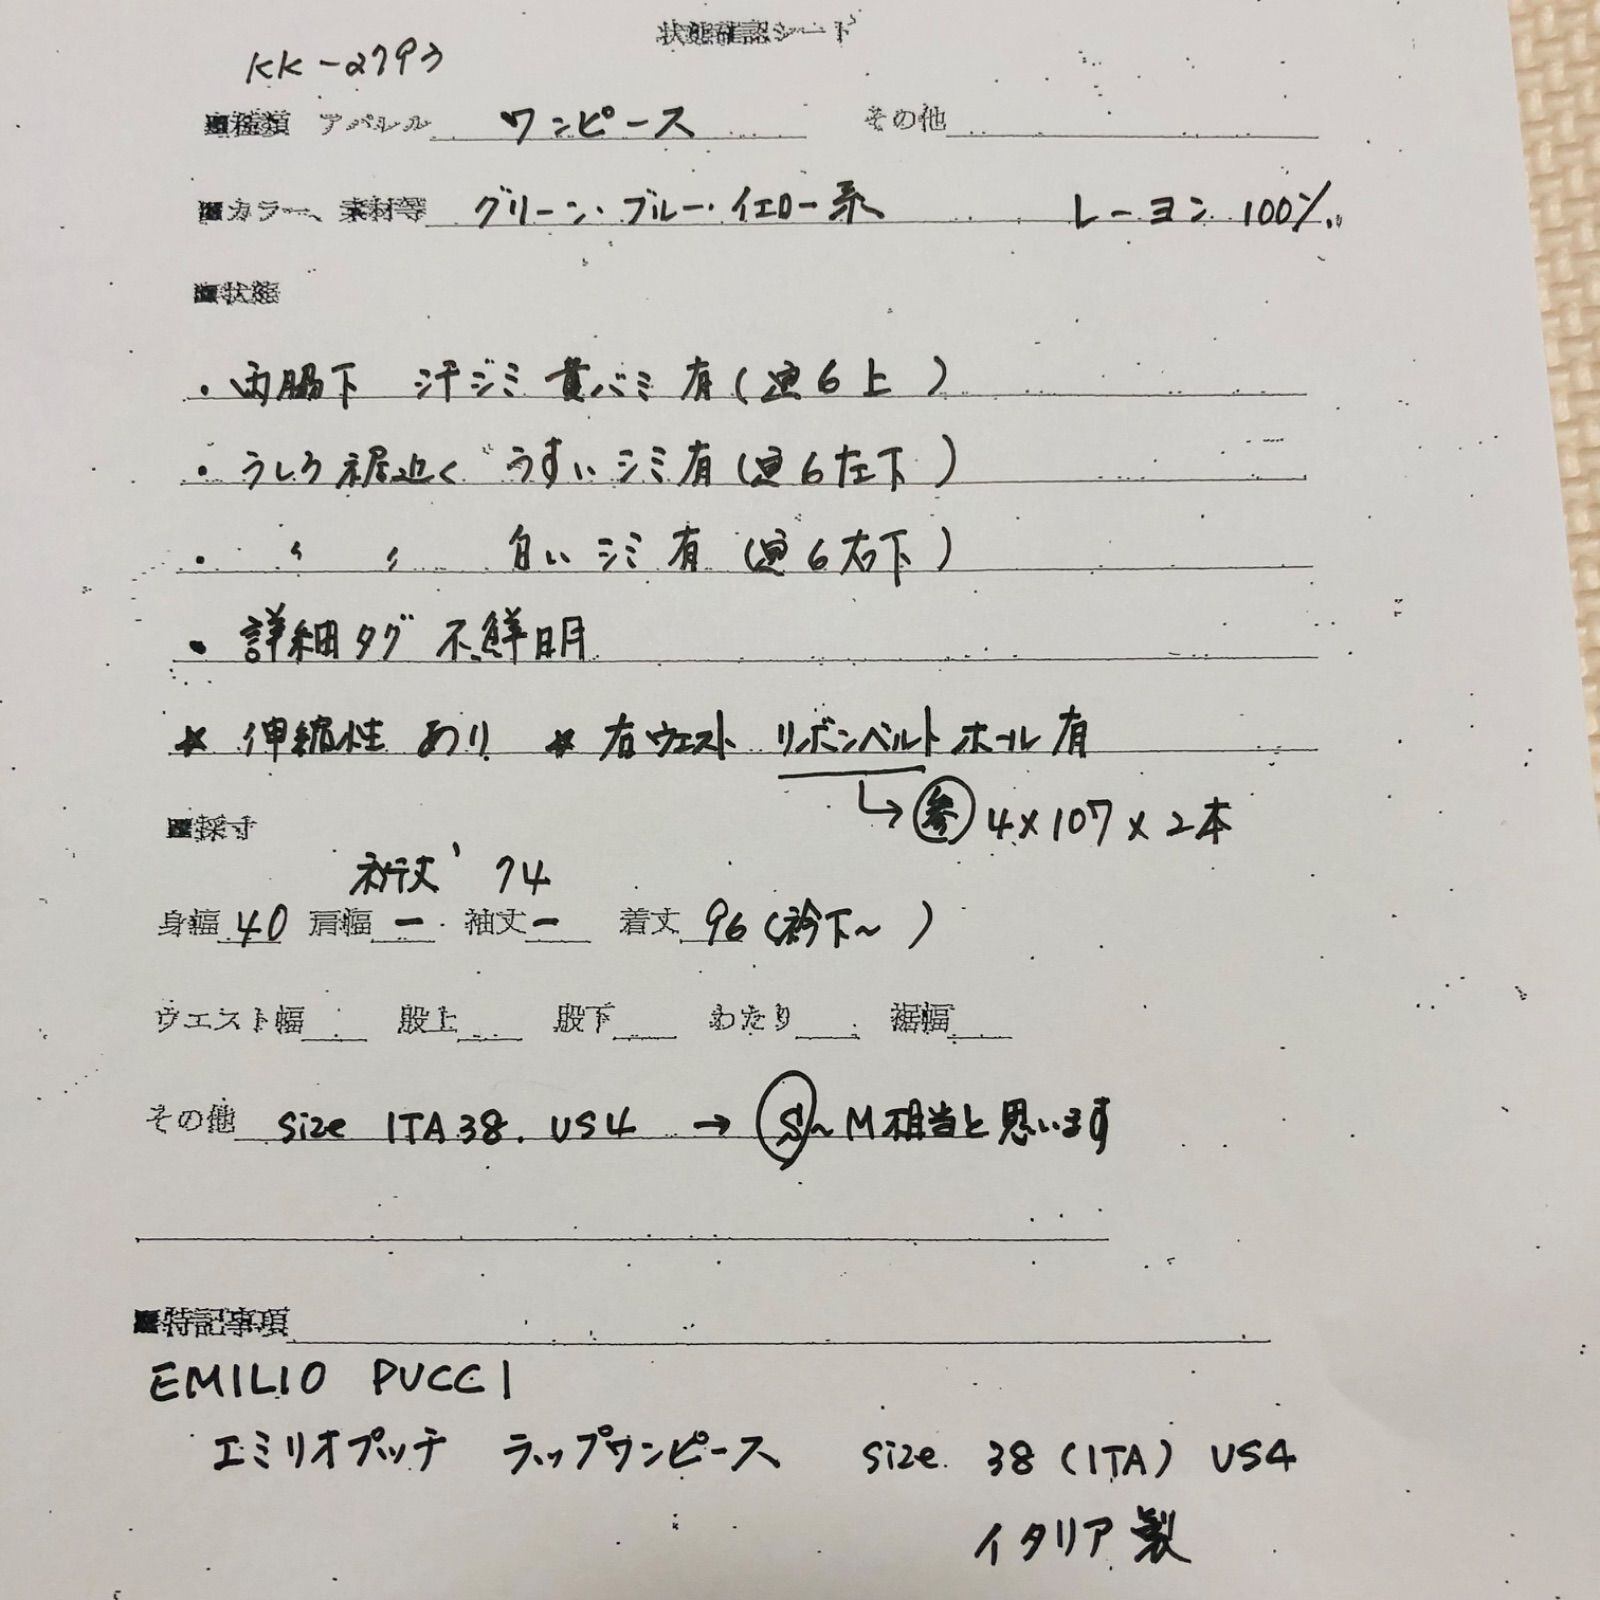 状態確認シート
KK-2793
■種類 アパレル ワンピース その他
■カラー、素材等 グリーン・ブルー・イエロー系 レーヨン 100%
■状態
・両脇下 汗ジミ 黄バミ 有(画6上 )
・うしろ裾近く うすいシミ有(画6左下 )
・ 〃 〃 白いシミ有 (画6右下 )
・詳細タグ 不鮮明
* 伸縮性 あり * 右ウエスト リボンベルト ホール 有
→ 参 4×107×2本
■採寸
裄丈 74
身幅 40 肩幅 ー 袖丈 ー 着丈 96 (衿下~ )
ウエスト幅 股上 股下 わたり 裾幅
その他 size ITA38. US4 → S~M相当と思います
■特記事項
EMILIO PUCCI
エミリオプッチ ラップワンピース size 38 (ITA) US4
イタリア製